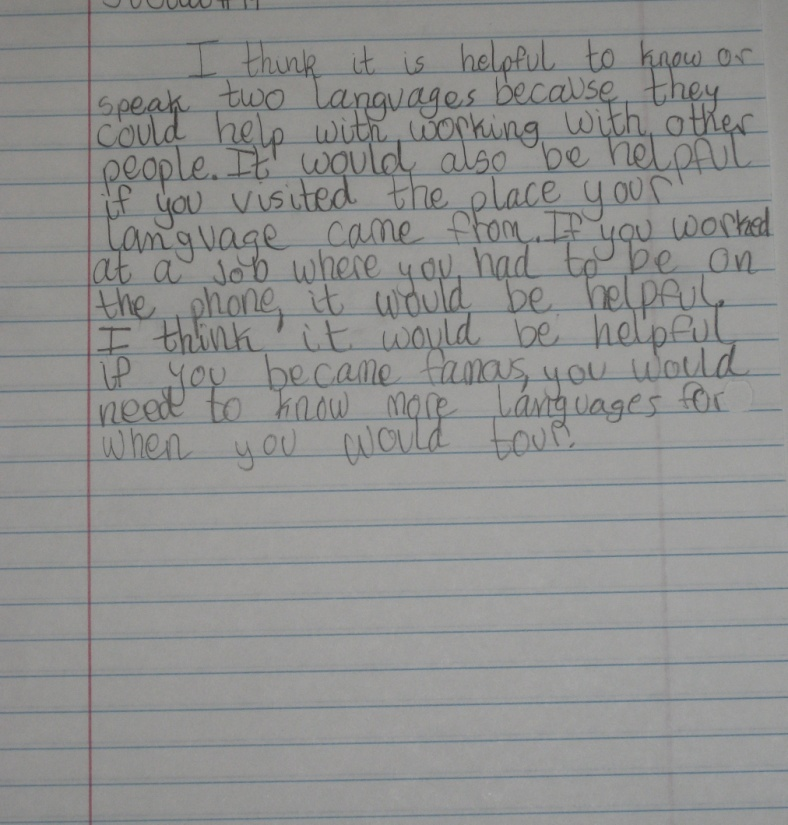 I think it is helpful to know or
speak two languages because they
could help with working with other
people. It would also be helpful
if you visited the place your
language came from. If you worked
at a job where you had to be on
the phone, it would be helpful.
I think it would be helpful
if you became famous, you would
need to know more languages for
when you would tour.